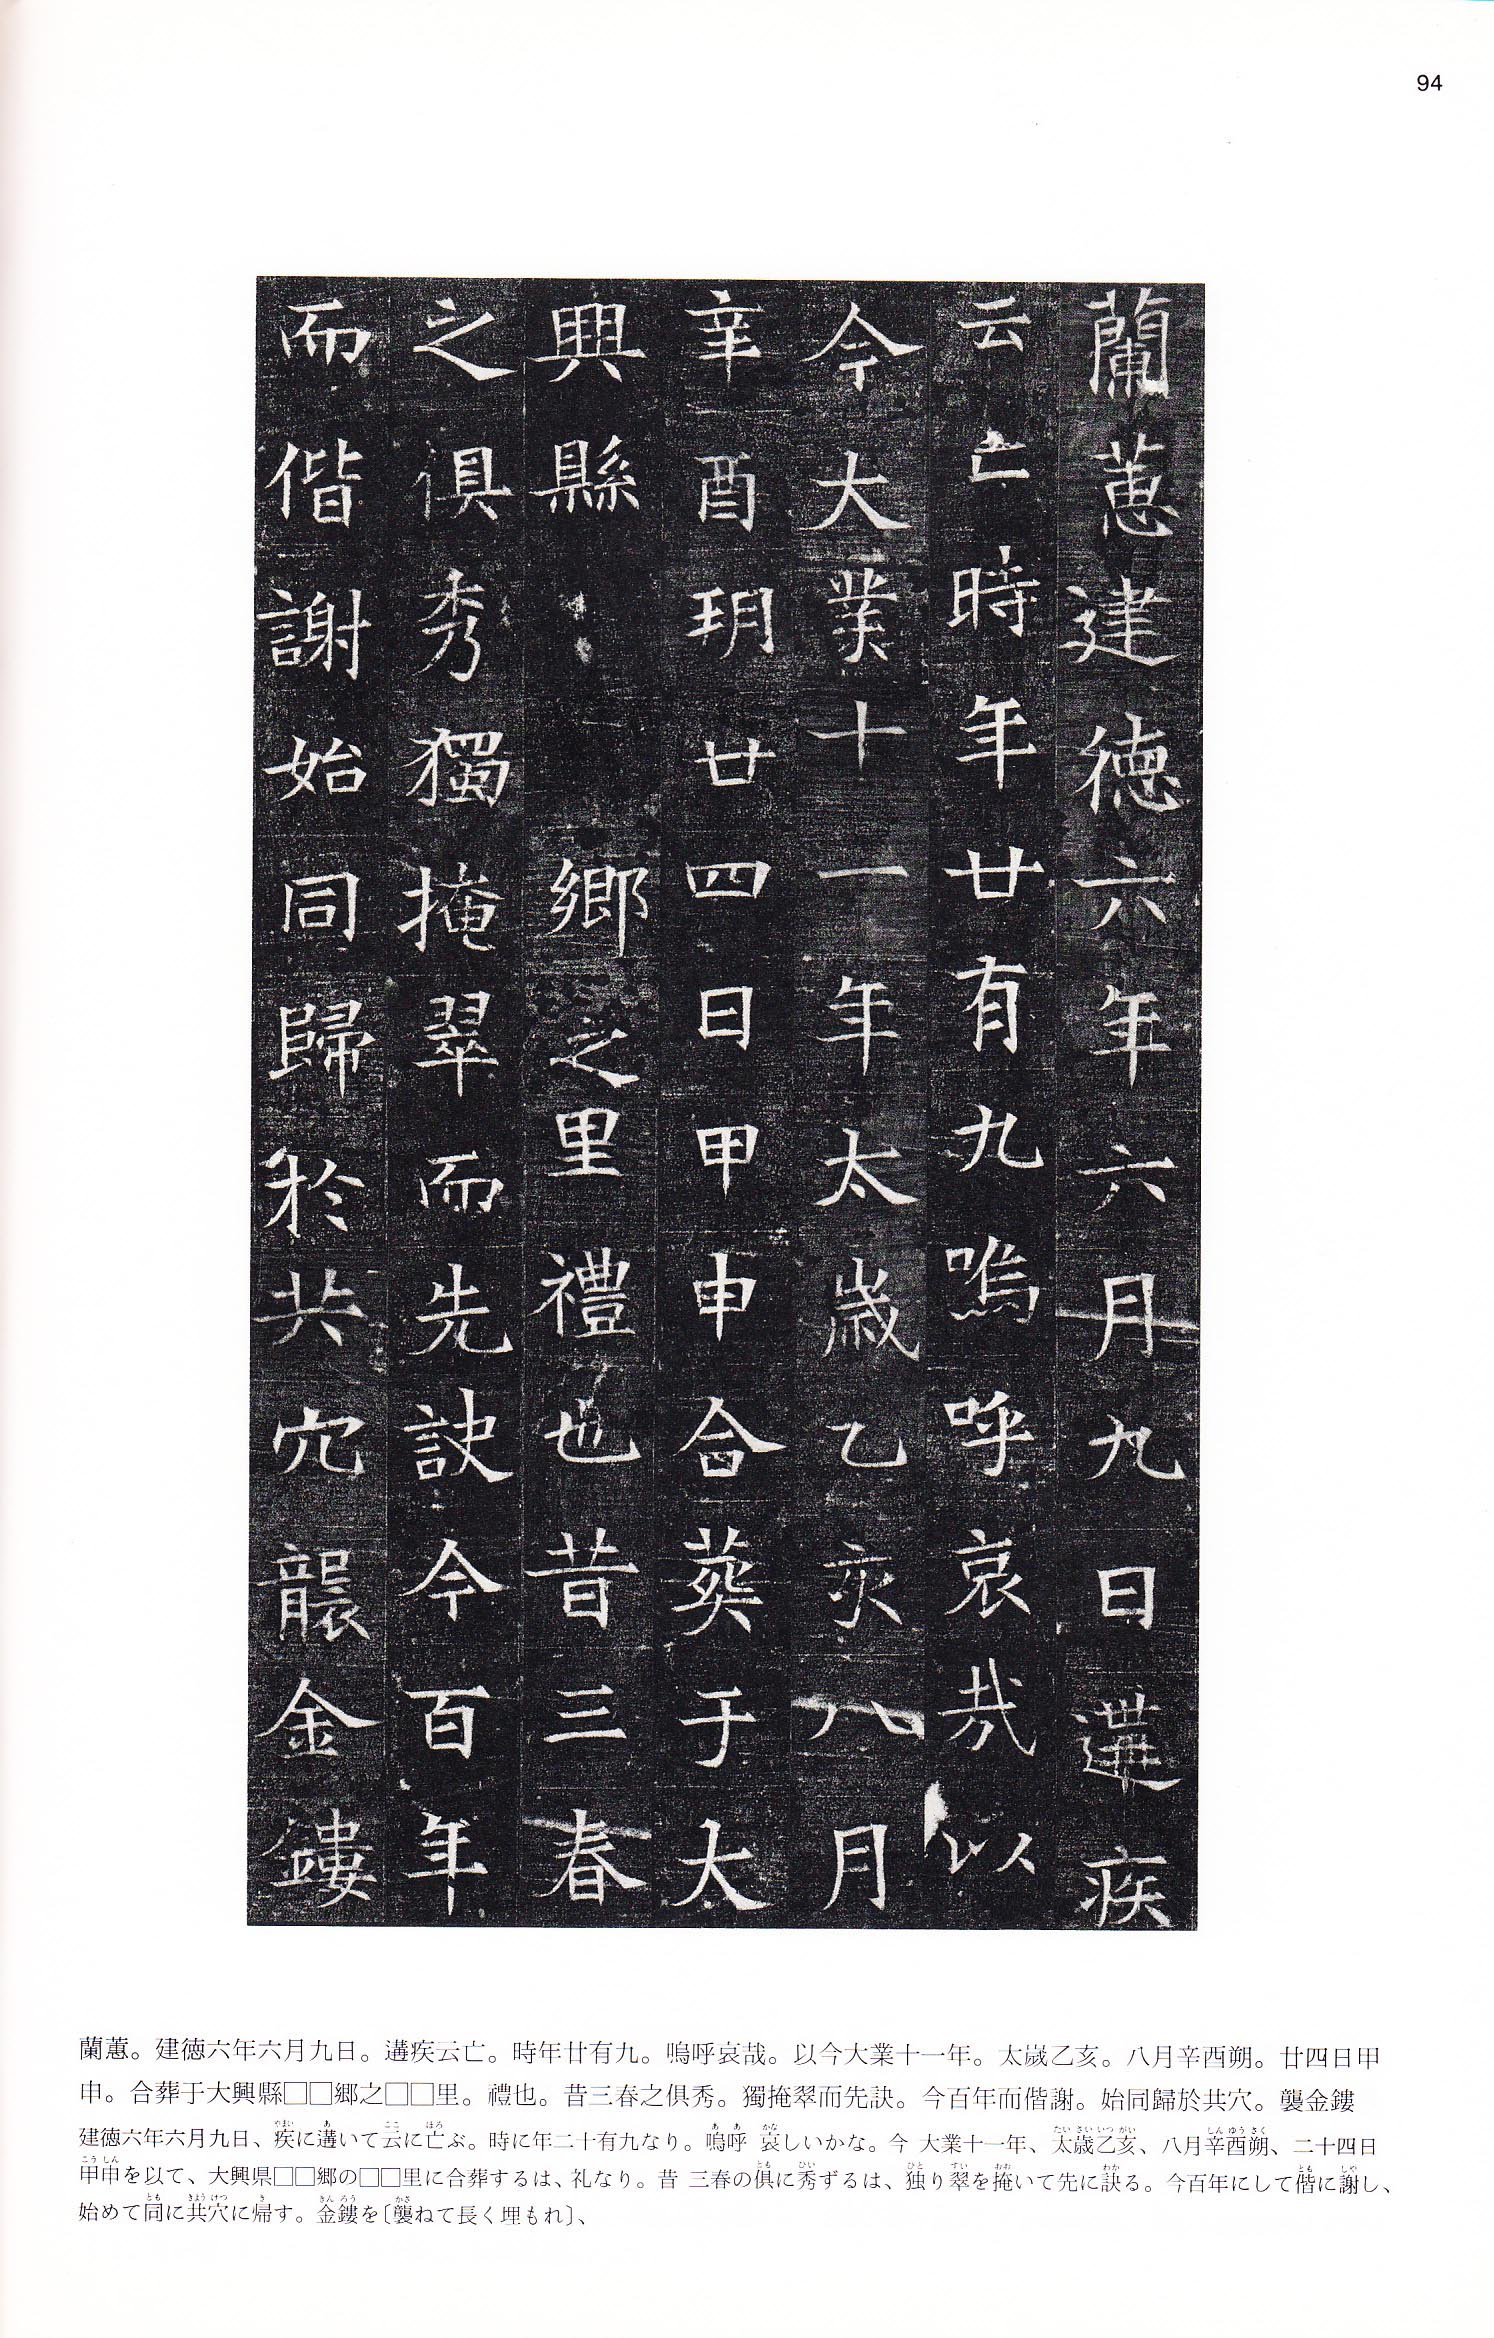 94
蘭蕙建德六年六月九日遘疾
云亡時年廿有九嗚呼哀哉以
今大業十一年太歲乙亥八月
辛酉玥廿四日甲申合葬于大
興縣鄉之里禮也昔三春
之俱秀獨掩翠而先訣今百年
而偕謝始同歸於共穴襲金鏤
蘭蕙。建徳六年六月九日。遘疾云亡。時年廿有九。嗚呼哀哉。以今大業十一年。太歲乙亥。八月辛酉朔。廿四日甲
申。合葬于大興縣□□郷之□□里。禮也。昔三春之俱秀。獨掩翠而先訣。今百年而偕謝。始同歸於共穴。襲金鏤
建徳六年六月九日、疾に遘いて云に亡ぶ。時に年二十有九なり。嗚呼 哀しいかな。今 大業十一年、太歳乙亥、八月辛酉朔、二十四日
甲申を以て、大興県□□郷の□□里に合葬するは、礼なり。昔 三春の俱に秀ずるは、独り翠を掩いて先に訣る。今百年にして偕に謝し、
始めて同に共穴に帰す。金鏤を〔襲ねて長く埋もれ〕、